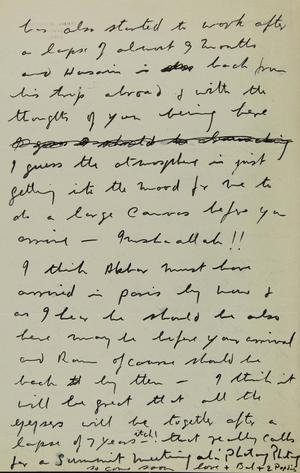 has also started to work after
a lapse of almost 9 months
and Husain is also back from
his trip abroad & with the
thoughts of you being here
I guess the atmosphere is just
getting into the mood for me to
do a large Canvas before you
arrive — Inshaallah!!
I think Akbar must have
arrived in paris by now &
as I hear he should be also
here may be before your arrival
and Ram of course should be
back by then — I think it
will be great that all the
will be together after a
lapse of 7 years itch! that really calls
for a Summit meeting
so come soon love + Bal + 2